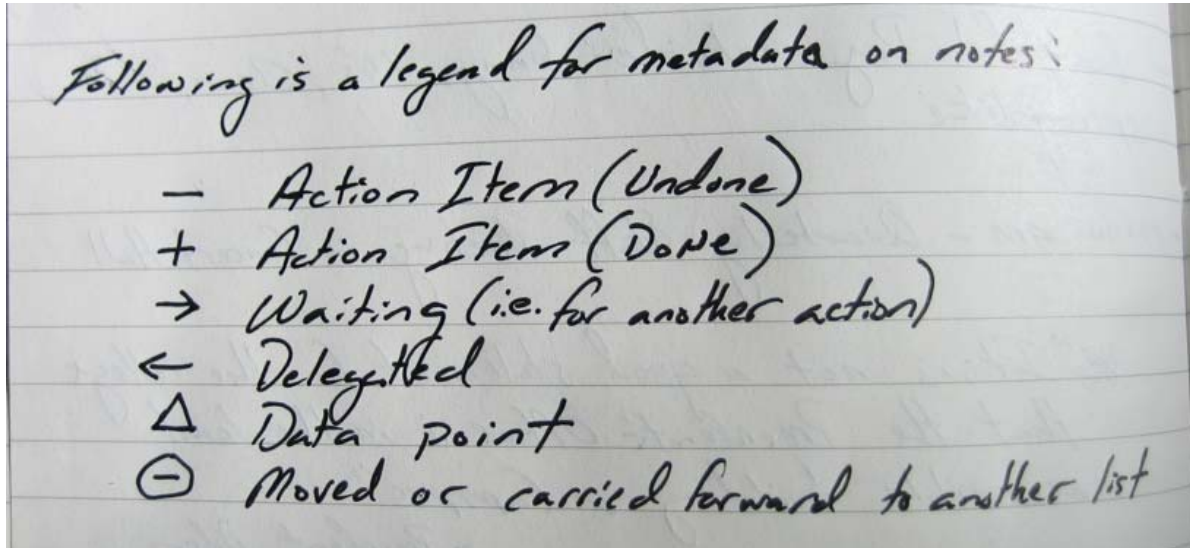 Following is a legend for metadata on notes:
− Action Item (Undone)
+ Action Item (Done)
→ Waiting (i.e. for another action)
← Delegated
△ Data point
⊖ Moved or carried forward to another list